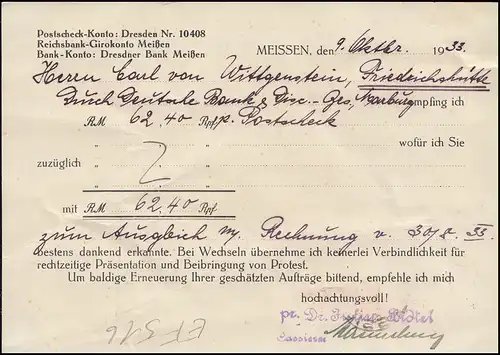 Postscheck-Konto: Dresden Nr. 10408
Reichsbank-Girokonto Meißen
Bank-Konto: Dresdner Bank Meißen
MEISSEN, den 9. Oktbr. 1933.
Herrn Carl von Wittgenstein, Friedrichshütte
Durch Deutsche Bank & Disc.-Ges., Marburg empfing ich
RM 62,40 Rpf p. Postscheck
" " " wofür ich Sie
zuzüglich " " "
" " "
mit RM 62,40 Rpf
zum Ausgleich m/ Rechnung v. 30/8. 33
bestens dankend erkannte. Bei Wechseln übernehme ich keinerlei Verbindlichkeit für
rechtzeitige Präsentation und Beibringung von Protest.
Um baldige Erneuerung Ihrer geschätzten Aufträge bittend, empfehle ich mich
hochachtungsvoll!
pr. Dr.
Cassierer
EF 516